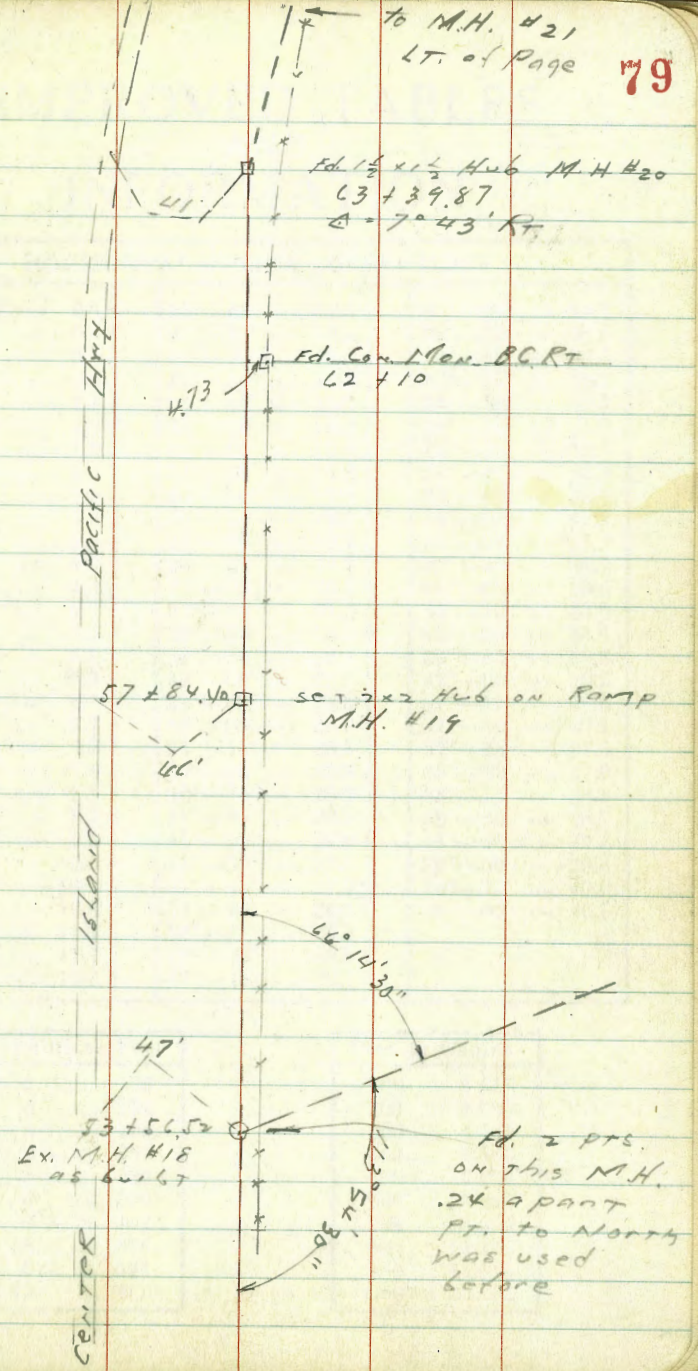 to M.H. #21
LT. of Page
79
Fd. 1½ x 1½ Hub M.H #20
63 + 39.87
∆ = 7° 43' RT.
41'
Fd. Con. Mon. BC RT.
62 + 10
4.73
57 + 84.40
set 2x2 Hub on Ramp
M.H. #19
46'
66° 14' 30"
47'
53 + 56.52
Ex. M.H. #18
as built
113° 54' 30"
Fd. 2 pts.
on this M.H.
.24 apart
Pt. to North
was used
before
CENTER Island Pacific Hwy